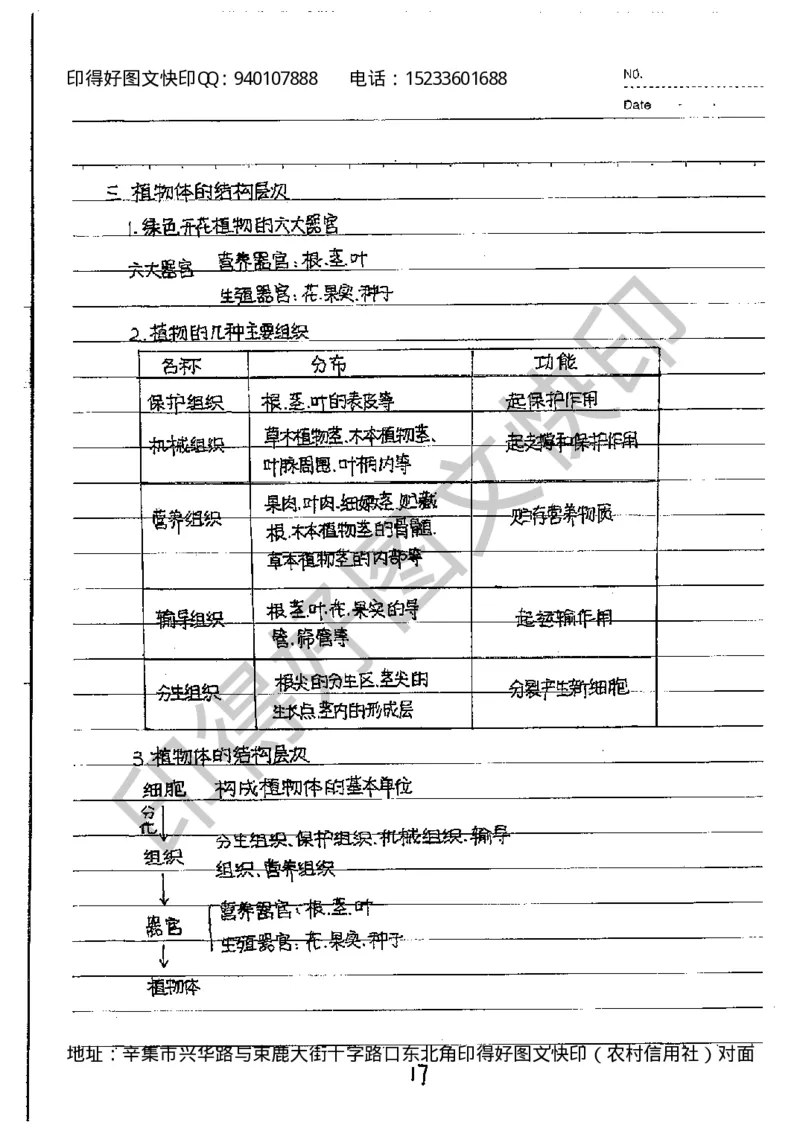 印得好图文快印QQ：940107888 电话：15233601688
NO.
Date
三 植物体的结构层次
1.绿色开花植物的六大器官
六大器官 营养器官：根.茎.叶
生殖器官：花.果实.种子
2.植物的几种主要组织
名称 分布 功能
保护组织 根.茎.叶的表皮等 起保护作用
机械组织 草木植物茎.木本植物茎、 起支撑和保护作用
叶脉周围.叶柄内等
营养组织 果肉.叶肉.细嫩茎.贮藏 贮存营养物质
根.木本植物茎的骨髓.
草本植物茎的内部等
输导组织 根.茎.叶.花.果实的导 起运输作用
管.筛管等
分生组织 根尖的分生区.茎尖的 分裂产生新细胞
生长点.茎内的形成层
3.植物体的结构层次
细胞 构成植物体的基本单位
分化
组织 分生组织、保护组织.机械组织.输导
组织、营养组织
器官 营养器官：根.茎.叶
生殖器官：花.果实.种子
植物体
地址：辛集市兴华路与束鹿大街十字路口东北角印得好图文快印（农村信用社）对面
17
印得好图文快印